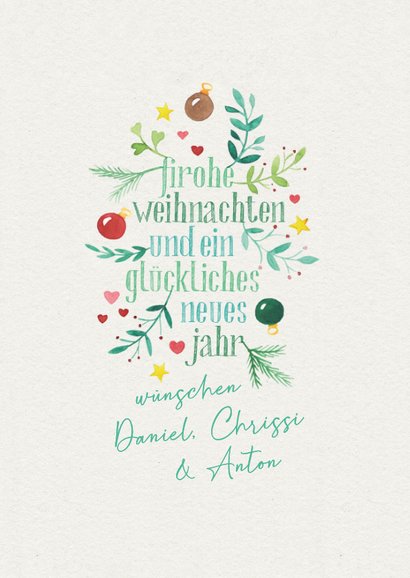 firohe
weihnachten
und ein
glückliches
neues
jahr
wünschen
Daniel, Chrissi
& Anton